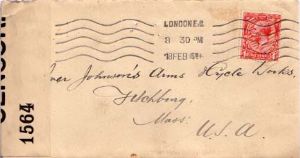 LONDON E.C.
8 30 PM
18 FEB
ver Johnson's Arms & Cycle Works,
Fitchburg
Mass.
U.S.A.
CENSOR
1564